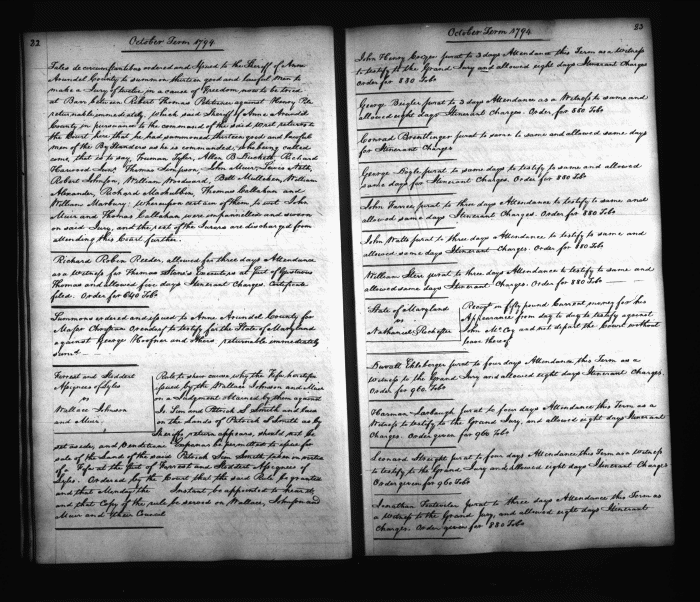 82
October Term 1794
Tales de circumstantibus ordered and issued to the Sheriff of Anne
Arundel County to summon thirteen good and lawful men to
make a Jury of twelve in a cause of Freedom, now to be tried
at Bar between Robert Thomas Petitioner against Henry
returnable immediately, which said Sheriff of Anne Arundel
County in pursuance to the command of the said writ returns to
the Court here, that he had summoned thirteen good and lawful
men of the By Standers as he is commanded, who being called
come, that is to say, Truman Allen B Richard
Harwood Thomas Simpson, John Muir, James Nath,
Robert Johnson, William Woodward, Bell William
Alexander, Richard Thomas Callahan and
William Marbury, whereupon certain of them to wit John
Muir and Thomas Callahan were empannelled and sworn
on said Jury, and the rest of the Jurors are discharged from
attending this Court further.
Richard Robin Reeder, allowed for three days Attendance
as a witness for Thomas Executors at Suit of
Thomas and allowed five days Itinerant Charges. Certificate
filed. Order for 640 Tobo
Summons ordered and issued to Anne Arundel County for
Major to testify for the State of Maryland
against George and others returnable immediately
Forrest and Stoddert
Assignees of
vs
Wallace Johnson
and Muir
Rule to shew cause why the
issued by the Wallace Johnson and Muir
on a Judgment obtained by them against
and Patrick S Smith and laid
on the Lands of Patrick S Smith as by
Sheriffs return appears, should not be
set aside, and permitted to issue for
sale of the Land of the said Patrick Sim Smith taken on
a Fifa at the suit of Forrest and Stoddert Assignees of
Ordered by the Court that the said Rule be granted
and that Monday the Instant, be appointed to hear it,
and that Copy of the rule be served on Wallace, Johnson and
Muir and their Council
83
October Term 1794
John Henry sworn to 3 days Attendance this Term as a Witness
to testify to the Grand Jury and allowed eight days Itinerant Charges
Order for 880 Tobo
George sworn to 3 days Attendance as a Witness to same and
allowed eight days Itinerant Charges. Order for 880 Tobo
Conrad sworn to same to same and allowed same days
for Itinerant Charges
George sworn to same days to testify to same and allowed
same days for Itinerant Charges. Order for 880 Tobo
John sworn to three days Attendance to testify to same and
allowed same days Itinerant Charges. Order for 880 Tobo
John Watts sworn to three days Attendance to testify to same and
allowed same days Itinerant Charges. Order for 880 Tobo
William sworn to three days Attendance to testify to same and
allowed same days Itinerant Charges. Order for 880 Tobo
State of Maryland
vs
Nathaniel Rochester
Recog. in fifty pound Current money for his
Appearance from day to day to testify against
John McCoy and not depart the Court without
leave thereof
sworn to four days Attendance this Term as a
Witness to the Grand Jury and allowed eight days Itinerant Charges.
Order for 960 Tobo
Harman sworn to four days Attendance this Term as a
Witness to testify to the Grand Jury, and allowed eight days Itinerant
Charges. Order given for 960 Tobo
Leonard sworn to four days Attendance this Term as a Witness
to testify to the Grand Jury and allowed eight days Itinerant Charges
Order given for 960 Tobo
Jonathan sworn to three days Attendance this Term as
a Witness to the Grand Jury, and allowed eight days Itinerant
Charges. Order given for 880 Tobo